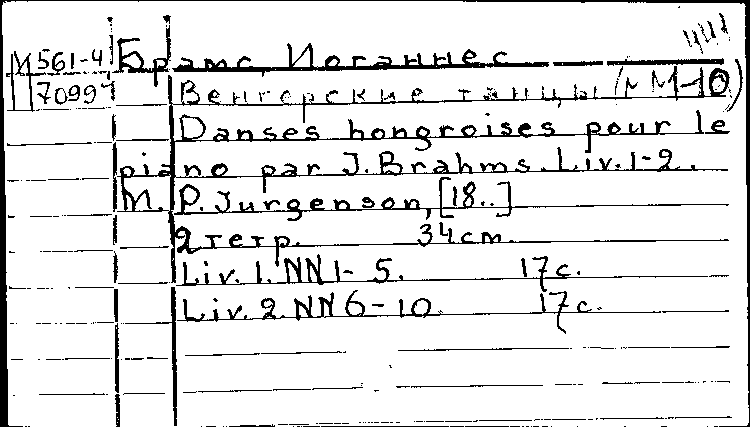 М 561-4 Брамс, Иоганнес
70997 Венгерские танцы (NN1-10)
Danses hongroises pour le
piano par J. Brahms. Liv. 1-2.
M. P. Jurgenson, [18..]
2 тетр. 34 cm.
Liv. 1. NN 1-5. 17 с.
Liv. 2. NN 6-10. 17 с.